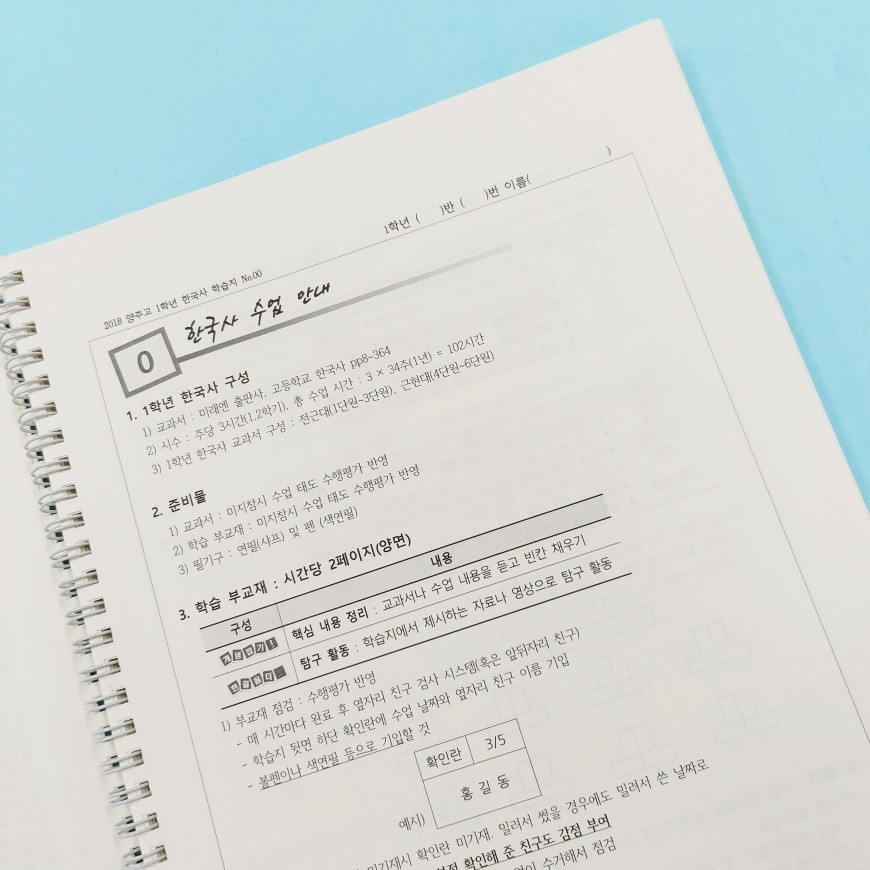 1학년 (    )반 (    )번 이름(            )
2018 양주고 1학년 한국사 학습지 No.00
0 한국사 수업 안내
1. 1학년 한국사 구성
1) 교과서 : 미래엔 출판사, 고등학교 한국사 pp8-364
2) 시수 : 주당 3시간(1,2학기), 총 수업 시간 : 3 × 34주(1년) = 102시간
3) 1학년 한국사 교과서 구성 : 전근대(1단원~3단원), 근현대(4단원~6단원)
2. 준비물
1) 교과서 : 미지참시 수업 태도 수행평가 반영
2) 학습 부교재 : 미지참시 수업 태도 수행평가 반영
3) 필기구 : 연필(샤프) 및 펜 (색연필)
3. 학습 부교재 : 시간당 2페이지(양면)
구성 내용
핵심 내용 정리 : 교과서나 수업 내용을 듣고 빈칸 채우기
탐구 활동 : 학습지에서 제시하는 자료나 영상으로 탐구 활동
1) 부교재 점검 : 수행평가 반영
- 매 시간마다 완료 후 옆자리 친구 검사 시스템(혹은 앞뒤자리 친구)
- 학습지 뒷면 하단 확인란에 수업 날짜와 옆자리 친구 이름 기입
- 볼펜이나 색연필 등으로 기입할 것
확인란 3/5
예시) 홍 길 동
미기재시 확인란 미기재. 밀려서 썼을 경우에도 밀려서 쓴 날짜로
확인해 준 친구도 감점 부여
수거해서 점검